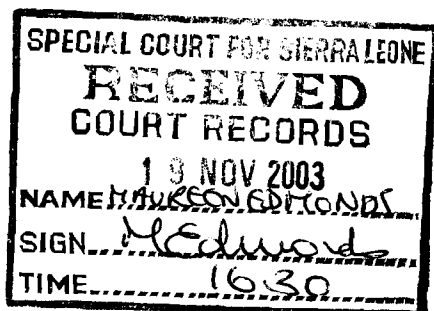 SPECIAL COURT FOR SIERRA LEONE
RECEIVED
COURT RECORDS
19 NOV 2003
NAME MAUREEN EDMONDS
SIGN MEdmonds
TIME 16.30